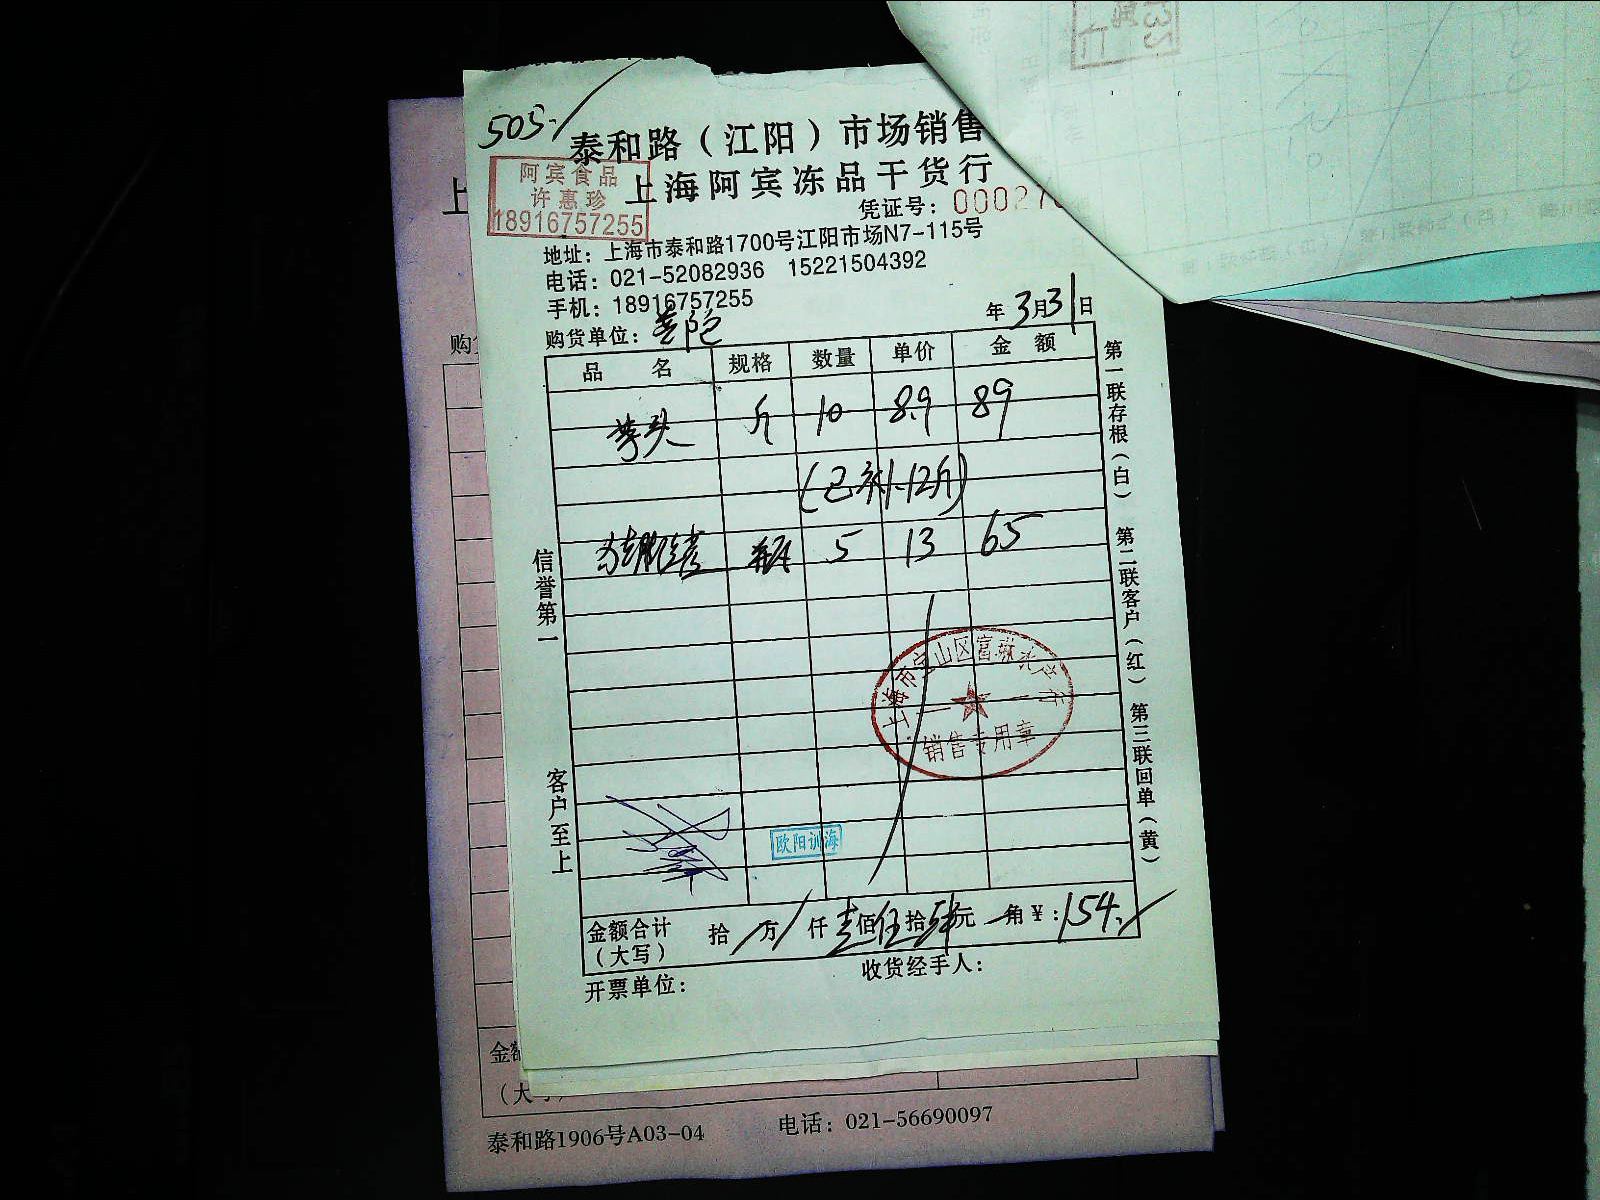 505./
泰和路（江阳）市场销售
阿宾食品
许惠珍
18916757255
上海阿宾冻品干货行
凭证号：00027
地址：上海市泰和路1700号江阳市场N7-115号
电话：021-52082936 15221504392
手机：18916757255
购货单位：
年 3月31日
品 名 规格 数量 单价 金 额
芋头 斤 10 8.9 89
（已补.12斤）
瓶 5 13 65
信誉第一
客户至上
第一联存根（白） 第二联客户（红） 第三联回单（黄）
上海市宝山区
销售专用章
欧阳训海
金额合计 拾 / 万 / 仟 壹佰伍拾肆元 角 ¥：154./
（大写）
开票单位： 收货经手人：
上
购
金额
（大写）
泰和路1906号A03-04 电话：021-56690097